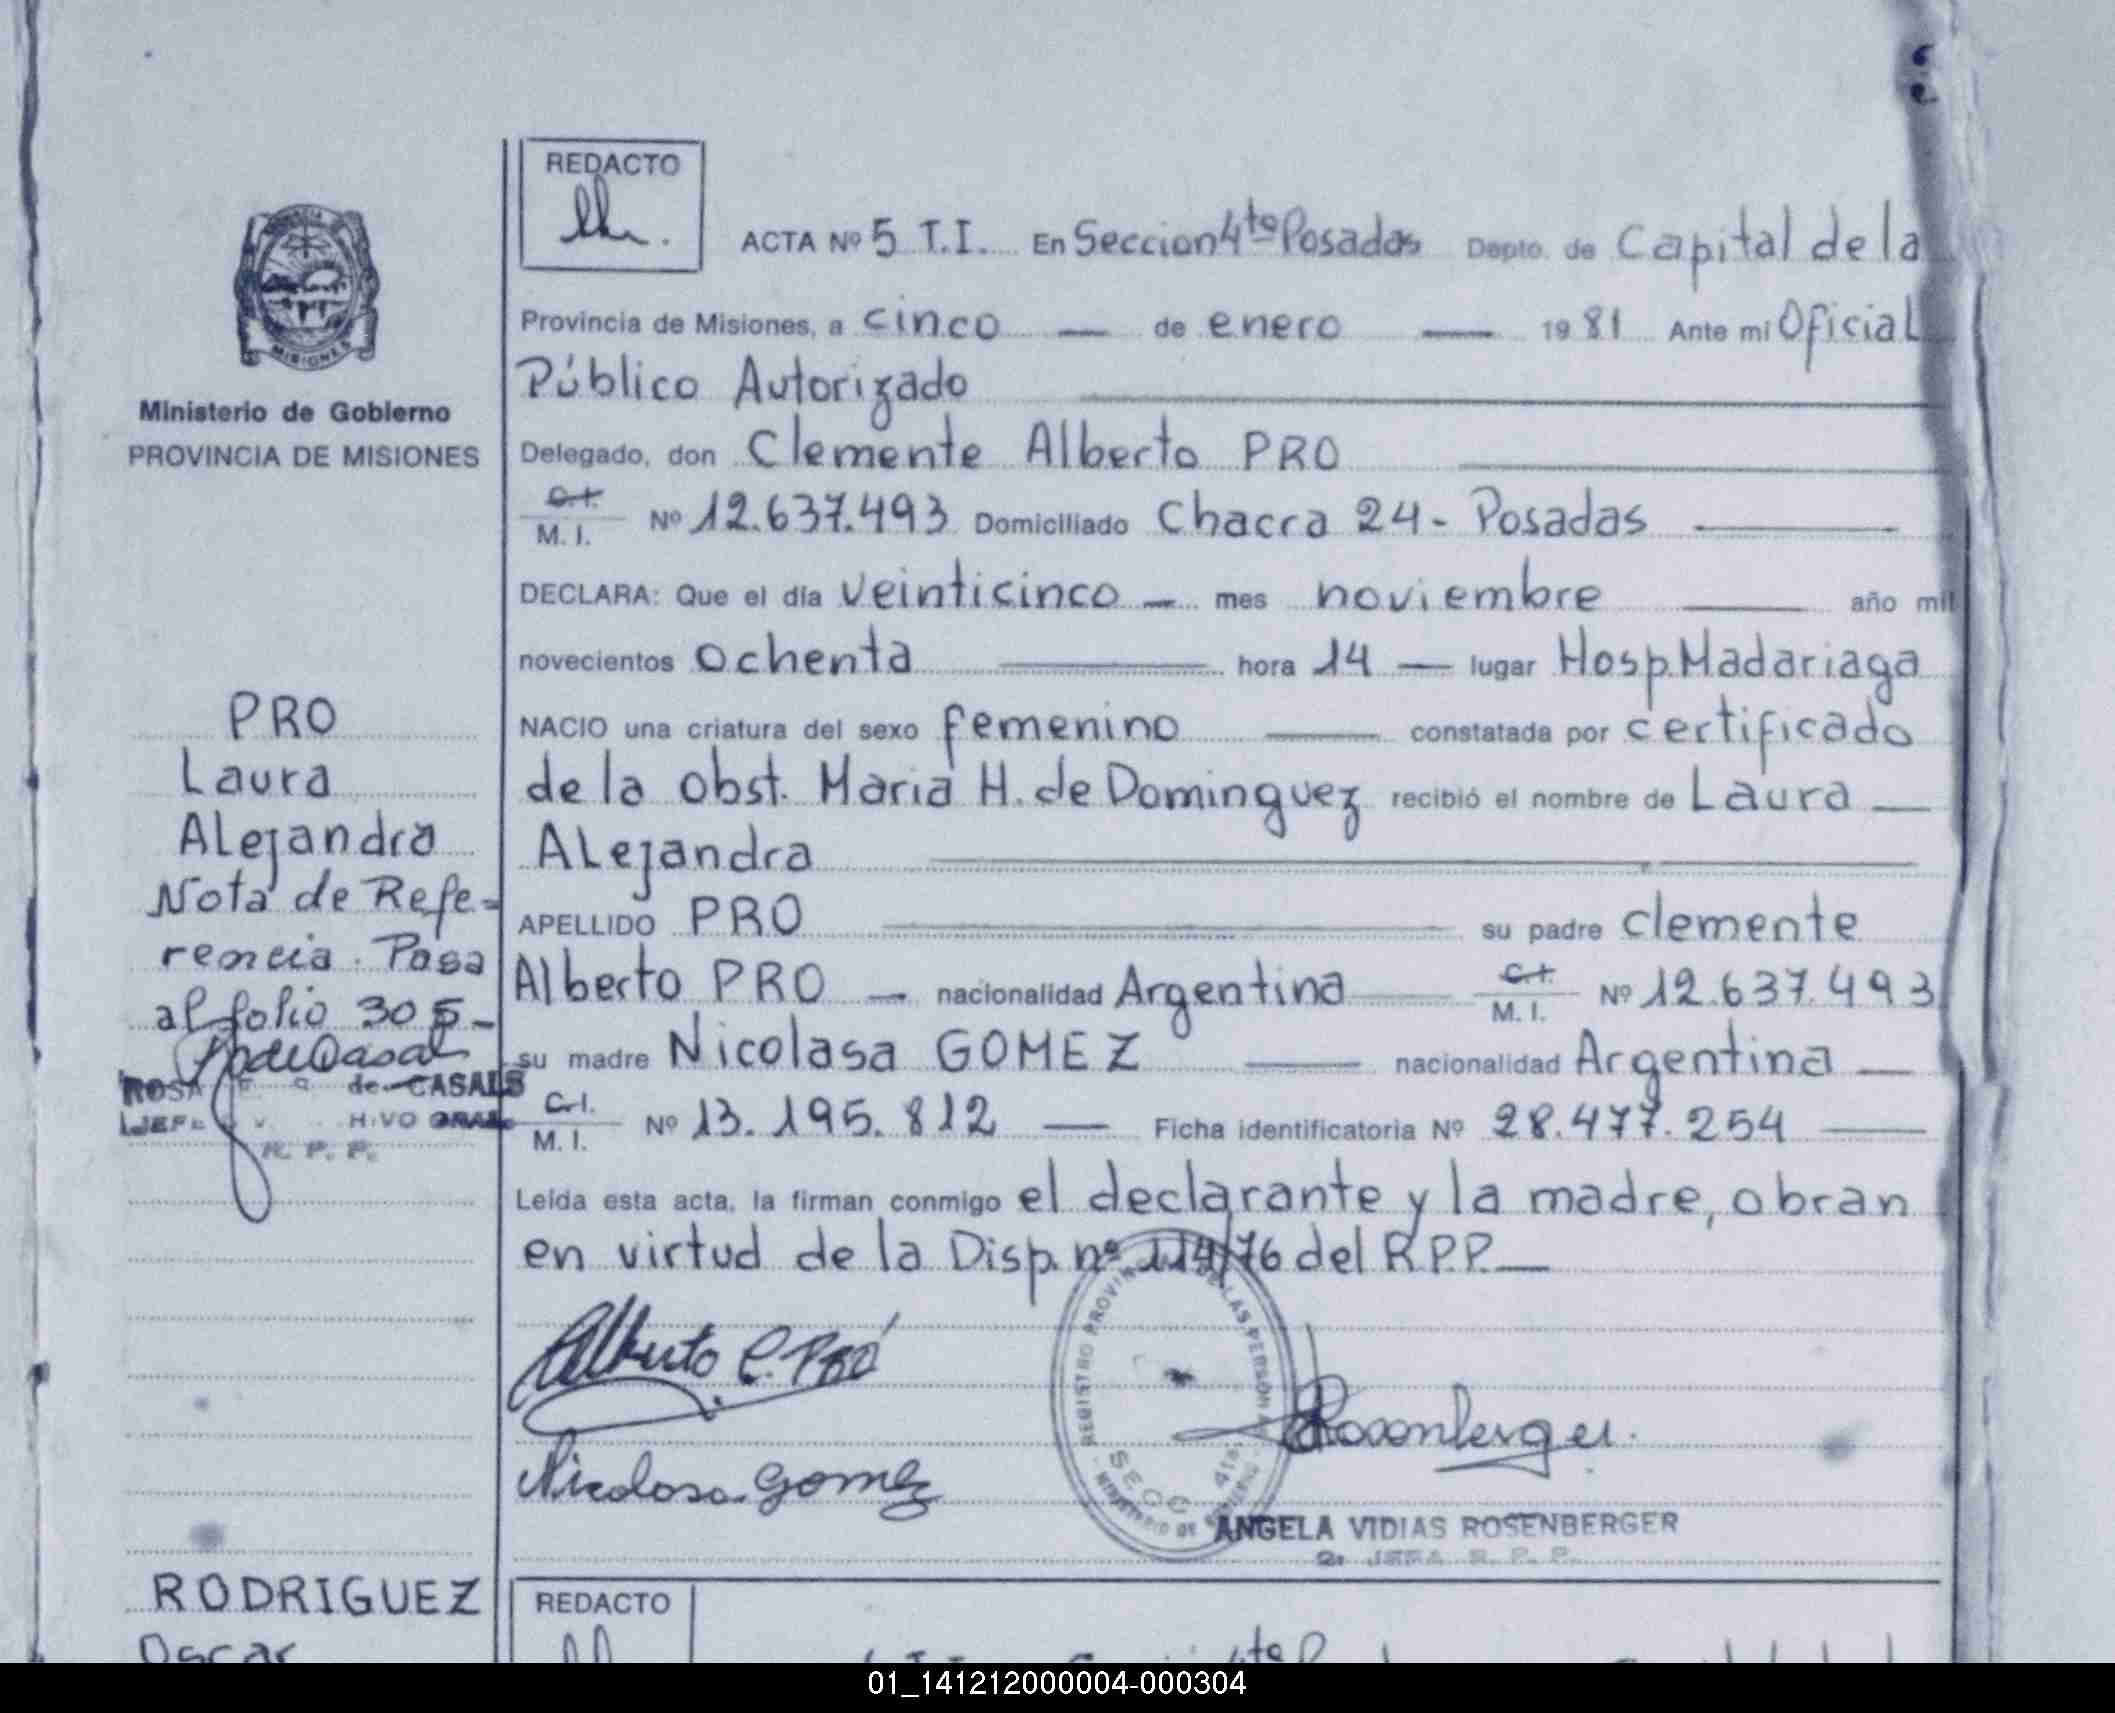 REDACTO
ACTA Nº 5 T.I. En Seccion 4ta Posadas Depto. de Capital de la
Provincia de Misiones, a cinco — de enero — 1981 Ante mi Oficial
Público Autorizado
Delegado, don Clemente Alberto PRO
C.I. M. I. Nº 12.637.493 Domiciliado Chacra 24 - Posadas —
DECLARA: Que el día veinticinco — mes noviembre — año mil
novecientos ochenta — hora 14 — lugar Hosp. Madariaga
NACIO una criatura del sexo femenino — constatada por certificado
de la obst. Maria H. de Dominguez recibió el nombre de Laura —
ALejandra
APELLIDO PRO — su padre clemente
Alberto PRO — nacionalidad Argentina C.I. M. I. Nº 12.637.493
su madre Nicolasa GOMEZ — nacionalidad Argentina —
C.I. M. I. Nº 13.195.812 — Ficha identificatoria Nº 28.477.254 —
Leída esta acta, la firman conmigo el declarante y la madre, obran
en virtud de la Disp. nº 114/76 del R.P.P. —
Alberto C. Pró
Nicolasa Gomez
Rosenberger
REGISTRO PROVINCIAL DE LAS PERSONAS
MINISTERIO DE GOBIERNO
SECC 4ta
ANGELA VIDIAS ROSENBERGER
2ª JEFA R. P. P.
PROVINCIA
MISIONES
Ministerio de Gobierno
PROVINCIA DE MISIONES
PRO
Laura
ALejandra
Nota de Refe-
rencia. Pasa
al folio 305-
ROSA de CASALS
JEFE HIVO GRAL.
R. P. P.
RODRIGUEZ
Oscar
REDACTO
01_141212000004-000304